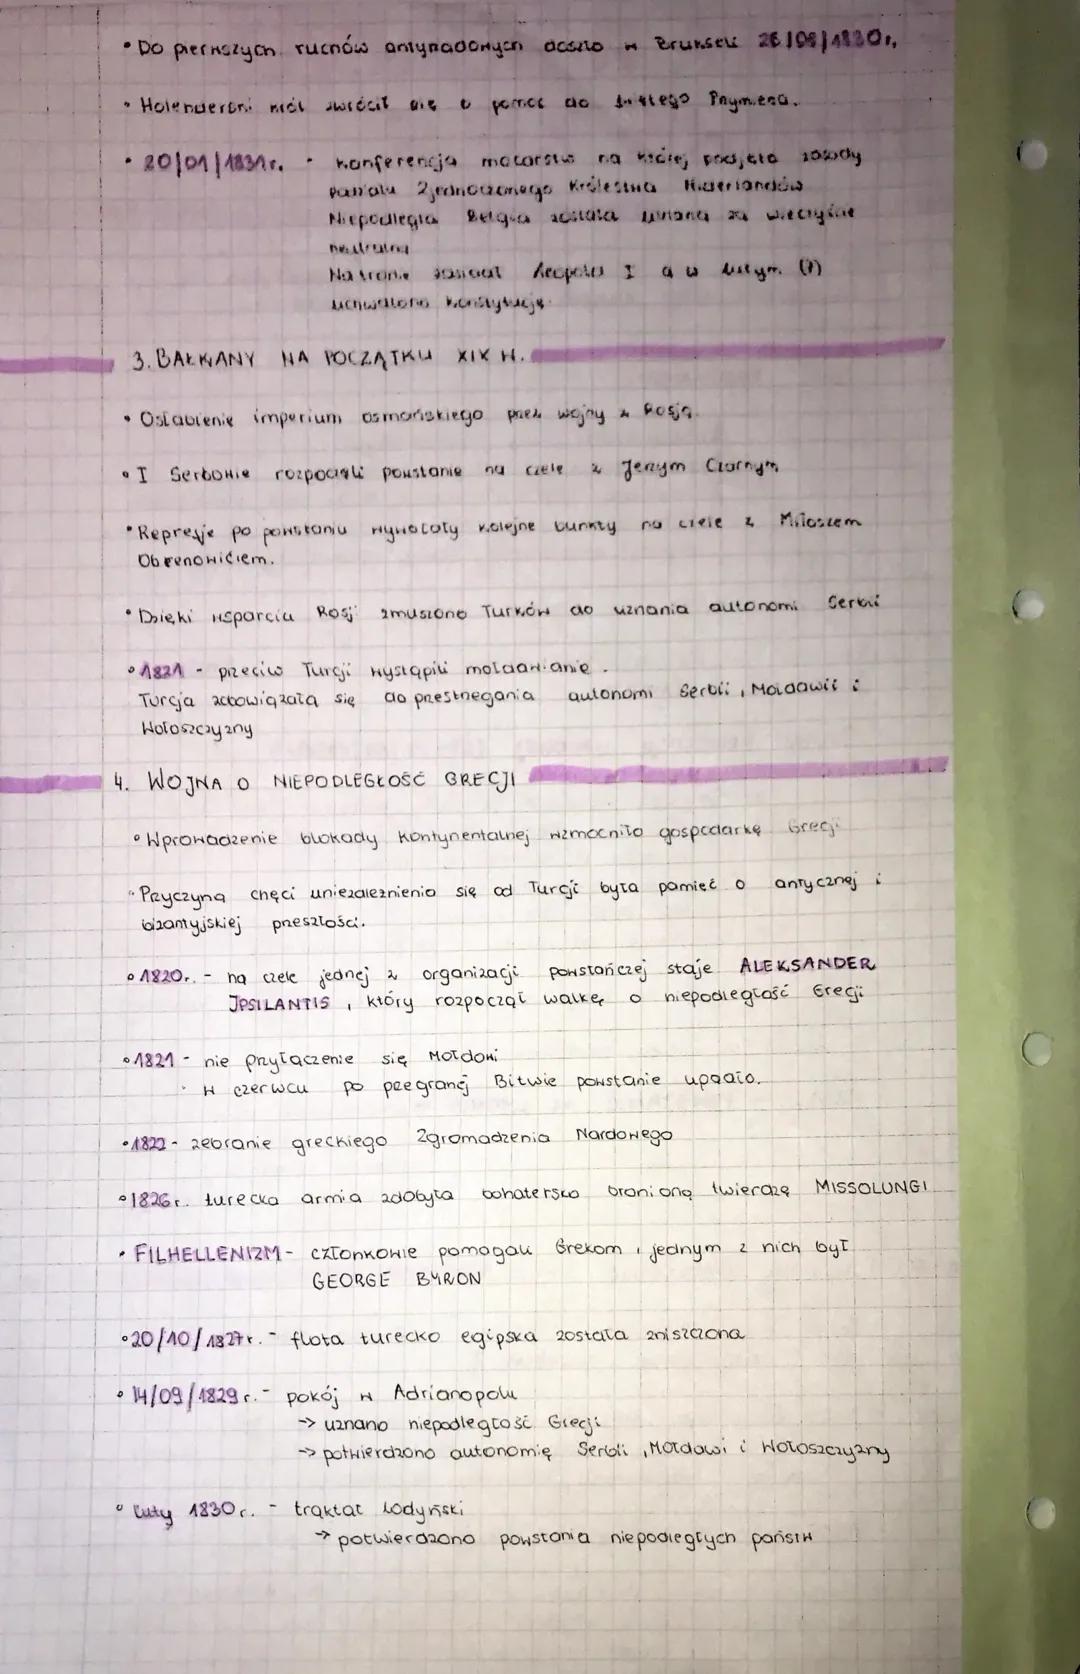 • Do pierwszych ruchów antyrządowych doszło w Brukseli 26/08/1830r.
• Holenderski król zwrócił się o pomoc do Świętego Przymierza.
• 20/01/1831r. - Konferencja mocarstw na której podjęto zasady
panału Zjednoczonego Królestwa Niderlandów
Niepodległa Belgia została uznana za wieczyście
neutralną
Na tronie zasiadł Leopold I a w lutym (7)
uchwalono konstytucję.
3. BAŁKANY NA POCZĄTKU XIX W.
• Osłabienie imperium osmańskiego przez wojny z Rosją.
• I Serbowie rozpoczęli powstanie na czele z Jerzym Czarnym
• Represje po powstaniu wywołały kolejne bunty na czele z Miłoszem
Obrenowićiem.
• Dzięki wsparciu Rosji zmuszono Turków do uznania autonomi Serbii
• 1821 - przeciw Turcji wystąpili mołdawianie.
Turcja zobowiązała się do przestrzegania autonomi Serbii, Mołdawii i
Wołoszczyzny
4. WOJNA O NIEPODLEGŁOŚĆ GRECJI
• Wprowadzenie blokady kontynentalnej wzmocniło gospodarkę Grecji
• Przyczyną chęci uniezależnienia się od Turcji była pamięć o antycznej i
bizantyjskiej przeszłości.
• 1820r. - na czele jednej z organizacji powstańczej staje ALEKSANDER
IPSILANTIS, który rozpoczął walkę o niepodległość Grecji
• 1821 - nie przyłączenie się Mołdowi
• w czerwcu po przegranej Bitwie powstanie upadło.
• 1822 - zebranie greckiego Zgromadzenia Nardowego
• 1826r. turecka armia zdobyła bohatersko bronioną twierdzę MISSOLUNGI
• FILHELLENIZM - członkowie pomagali Grekom, jednym z nich był
GEORGE BYRON
• 20/10/1827r. - flota turecko egipska została zniszczona
• 14/09/1829r. - pokój w Adrianopolu
-> uznano niepodległość Grecji
-> potwierdzono autonomię Serbii, Mołdawi i Wołoszczyzny
• luty 1830r. - traktat lodyński
-> potwierdzono powstania niepodległych państw